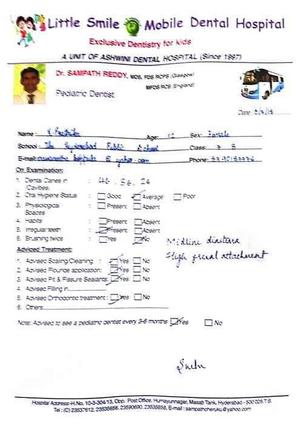 Little Smile Mobile Dental Hospital
Exclusive Dentistry for kids
A UNIT OF ASHWINI DENTAL HOSPITAL (Since 1997)
Dr. SAMPATH REDDY, MDS, FDS RCPS (Glasgow)
MFDS RCS (England)
Pediatric Dentist
Date:
Name: Age: 12 Sex: Female
School: The Hyderabad Public School Class:
E-mail: Phone:
On Examination:
1. Dental Caries in Cavities: 46, 36, 26
2. Oral Hygiene Status Good Average Poor
3. Physiological Spaces Present Absent
4. Habits Present Absent
5. Irregular teeth Present Absent
6. Brushing twice Yes No
Midline diastema
High frenal attachment
Adviced Treatment:
1. Advised Scaling Cleaning: Yes No
2. Advised Flouride application: Yes No
3. Advised Pit & Fissure Sealants: Yes No
4. Advised Filling in
5. Advised Orthodontic treatment: Yes No
6. Others
Note: Advised to see a pediatric dentist every 3-6 months Yes No
Hospital Address: H.No. 10-3-304/13, Opp. Post Office, Humayunnagar, Masab Tank, Hyderabad - 500 028 T.S.